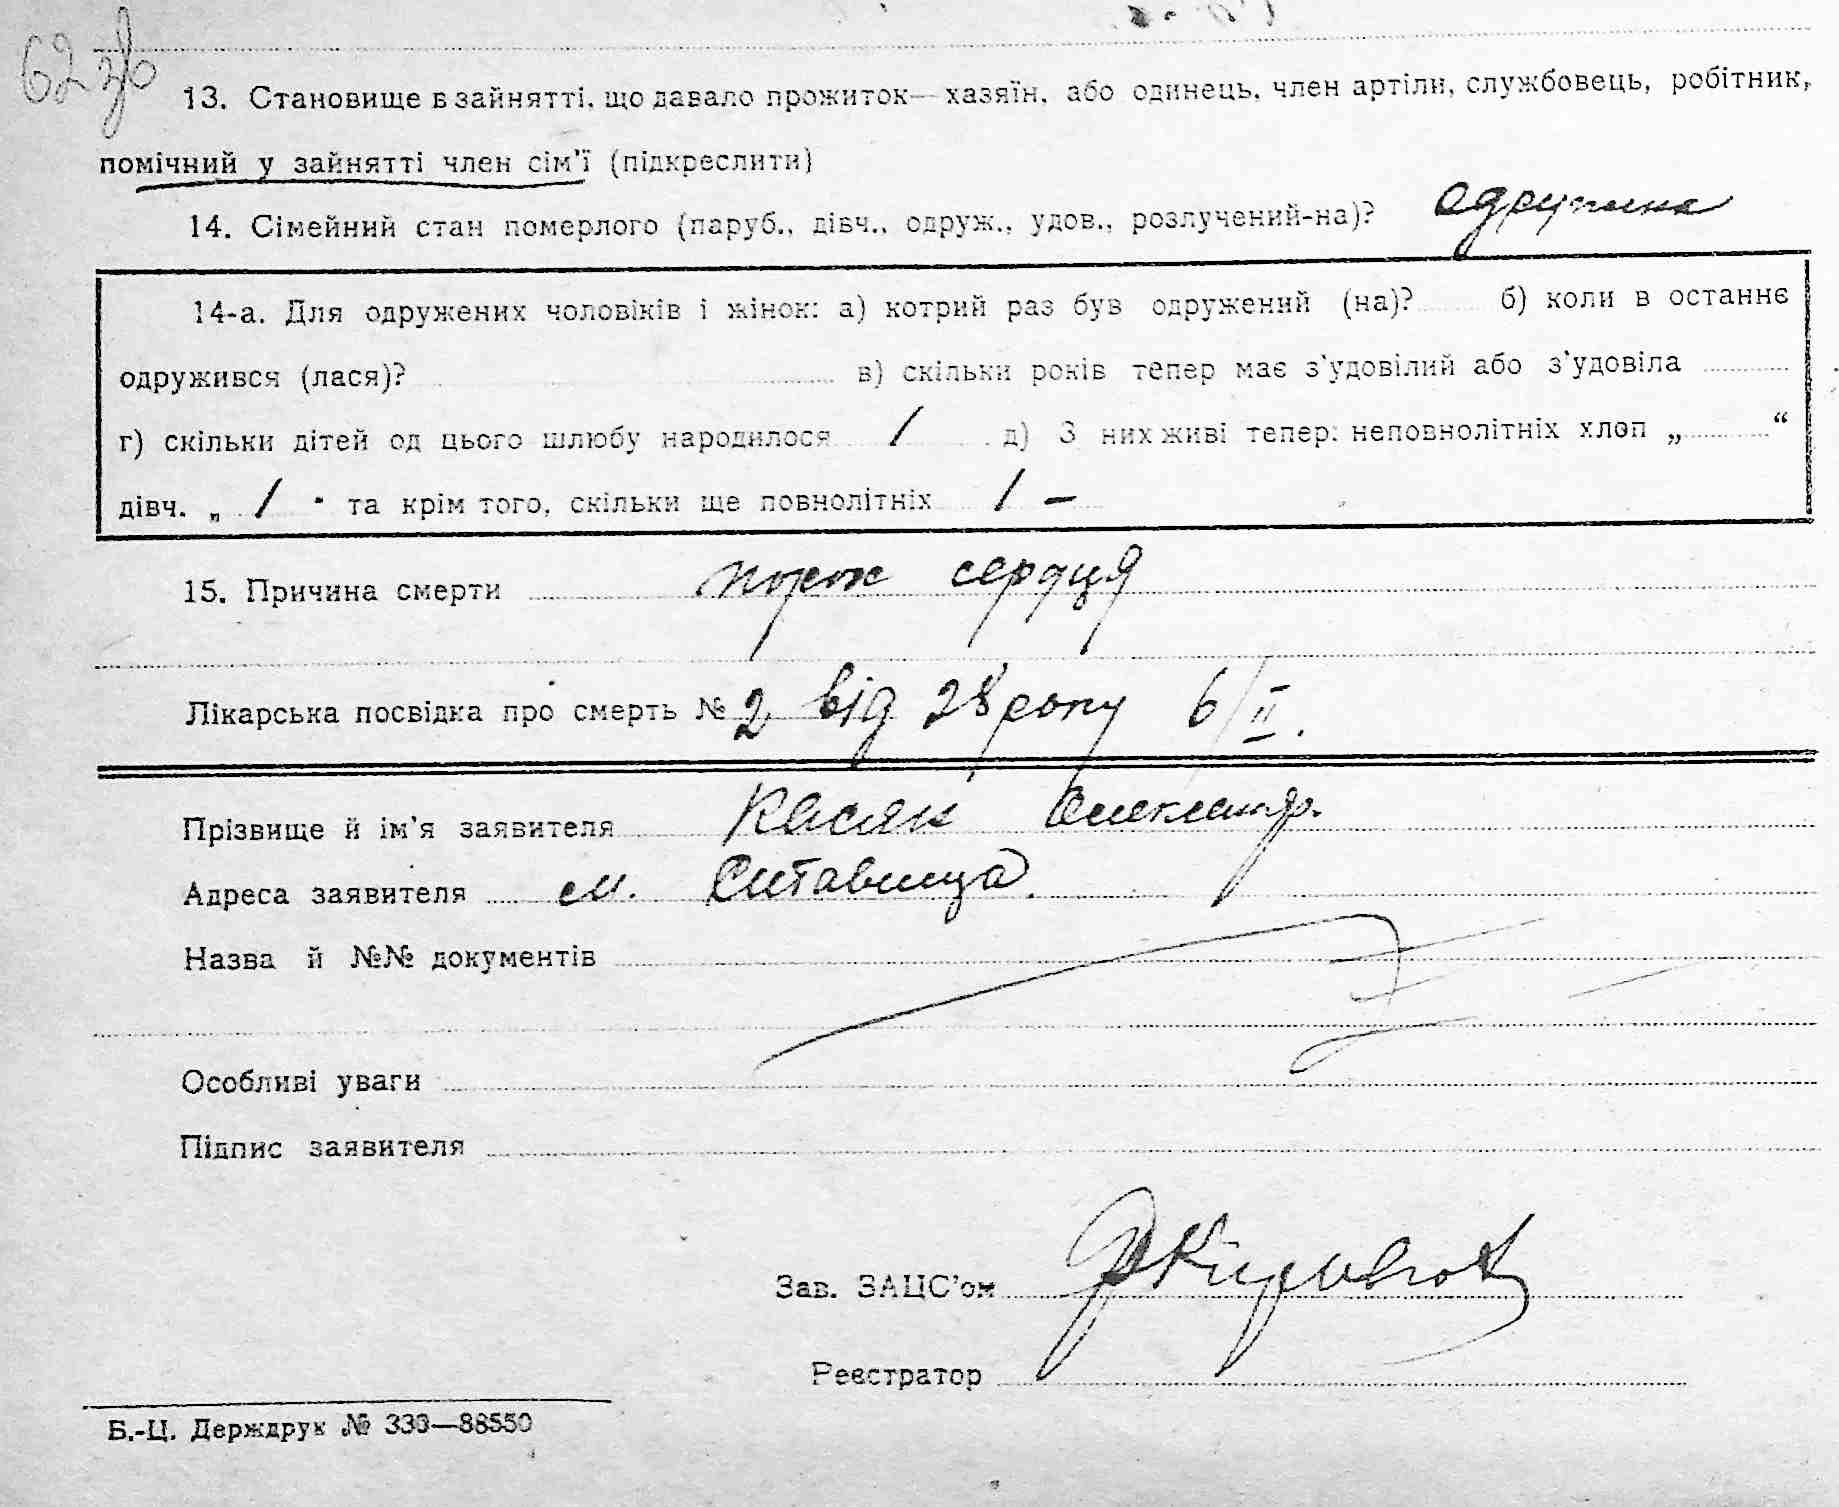 62 зв
13. Становище в зайнятті, що давало прожиток—хазяїн, або одинець, член артіли, службовець, робітник,
помічний у зайнятті член сім'ї (підкреслити)
14. Сімейний стан померлого (паруб., дівч., одруж., удов., розлучений-на)? одружена
14-а. Для одружених чоловіків і жінок: а) котрий раз був одружений (на)? б) коли в останнє
одружився (лася)? в) скільки років тепер має з'удовілий або з'удовіла
г) скільки дітей од цього шлюбу народилося 1 д) З них живі тепер: неповнолітніх хлоп „ “
дівч. „ 1 " та крім того, скільки ще повнолітніх 1 –
15. Причина смерти порок сердця
Лікарська посвідка про смерть № 2 від 28 року 6/II.
Прізвище й ім'я заявителя Касян Олександр.
Адреса заявителя см. Ситавища.
Назва й №№ документів
Особливі уваги
Підпис заявителя
Зав. ЗАЦС'ом
Реєстратор
Б.-Ц. Держдрук № 330—88550